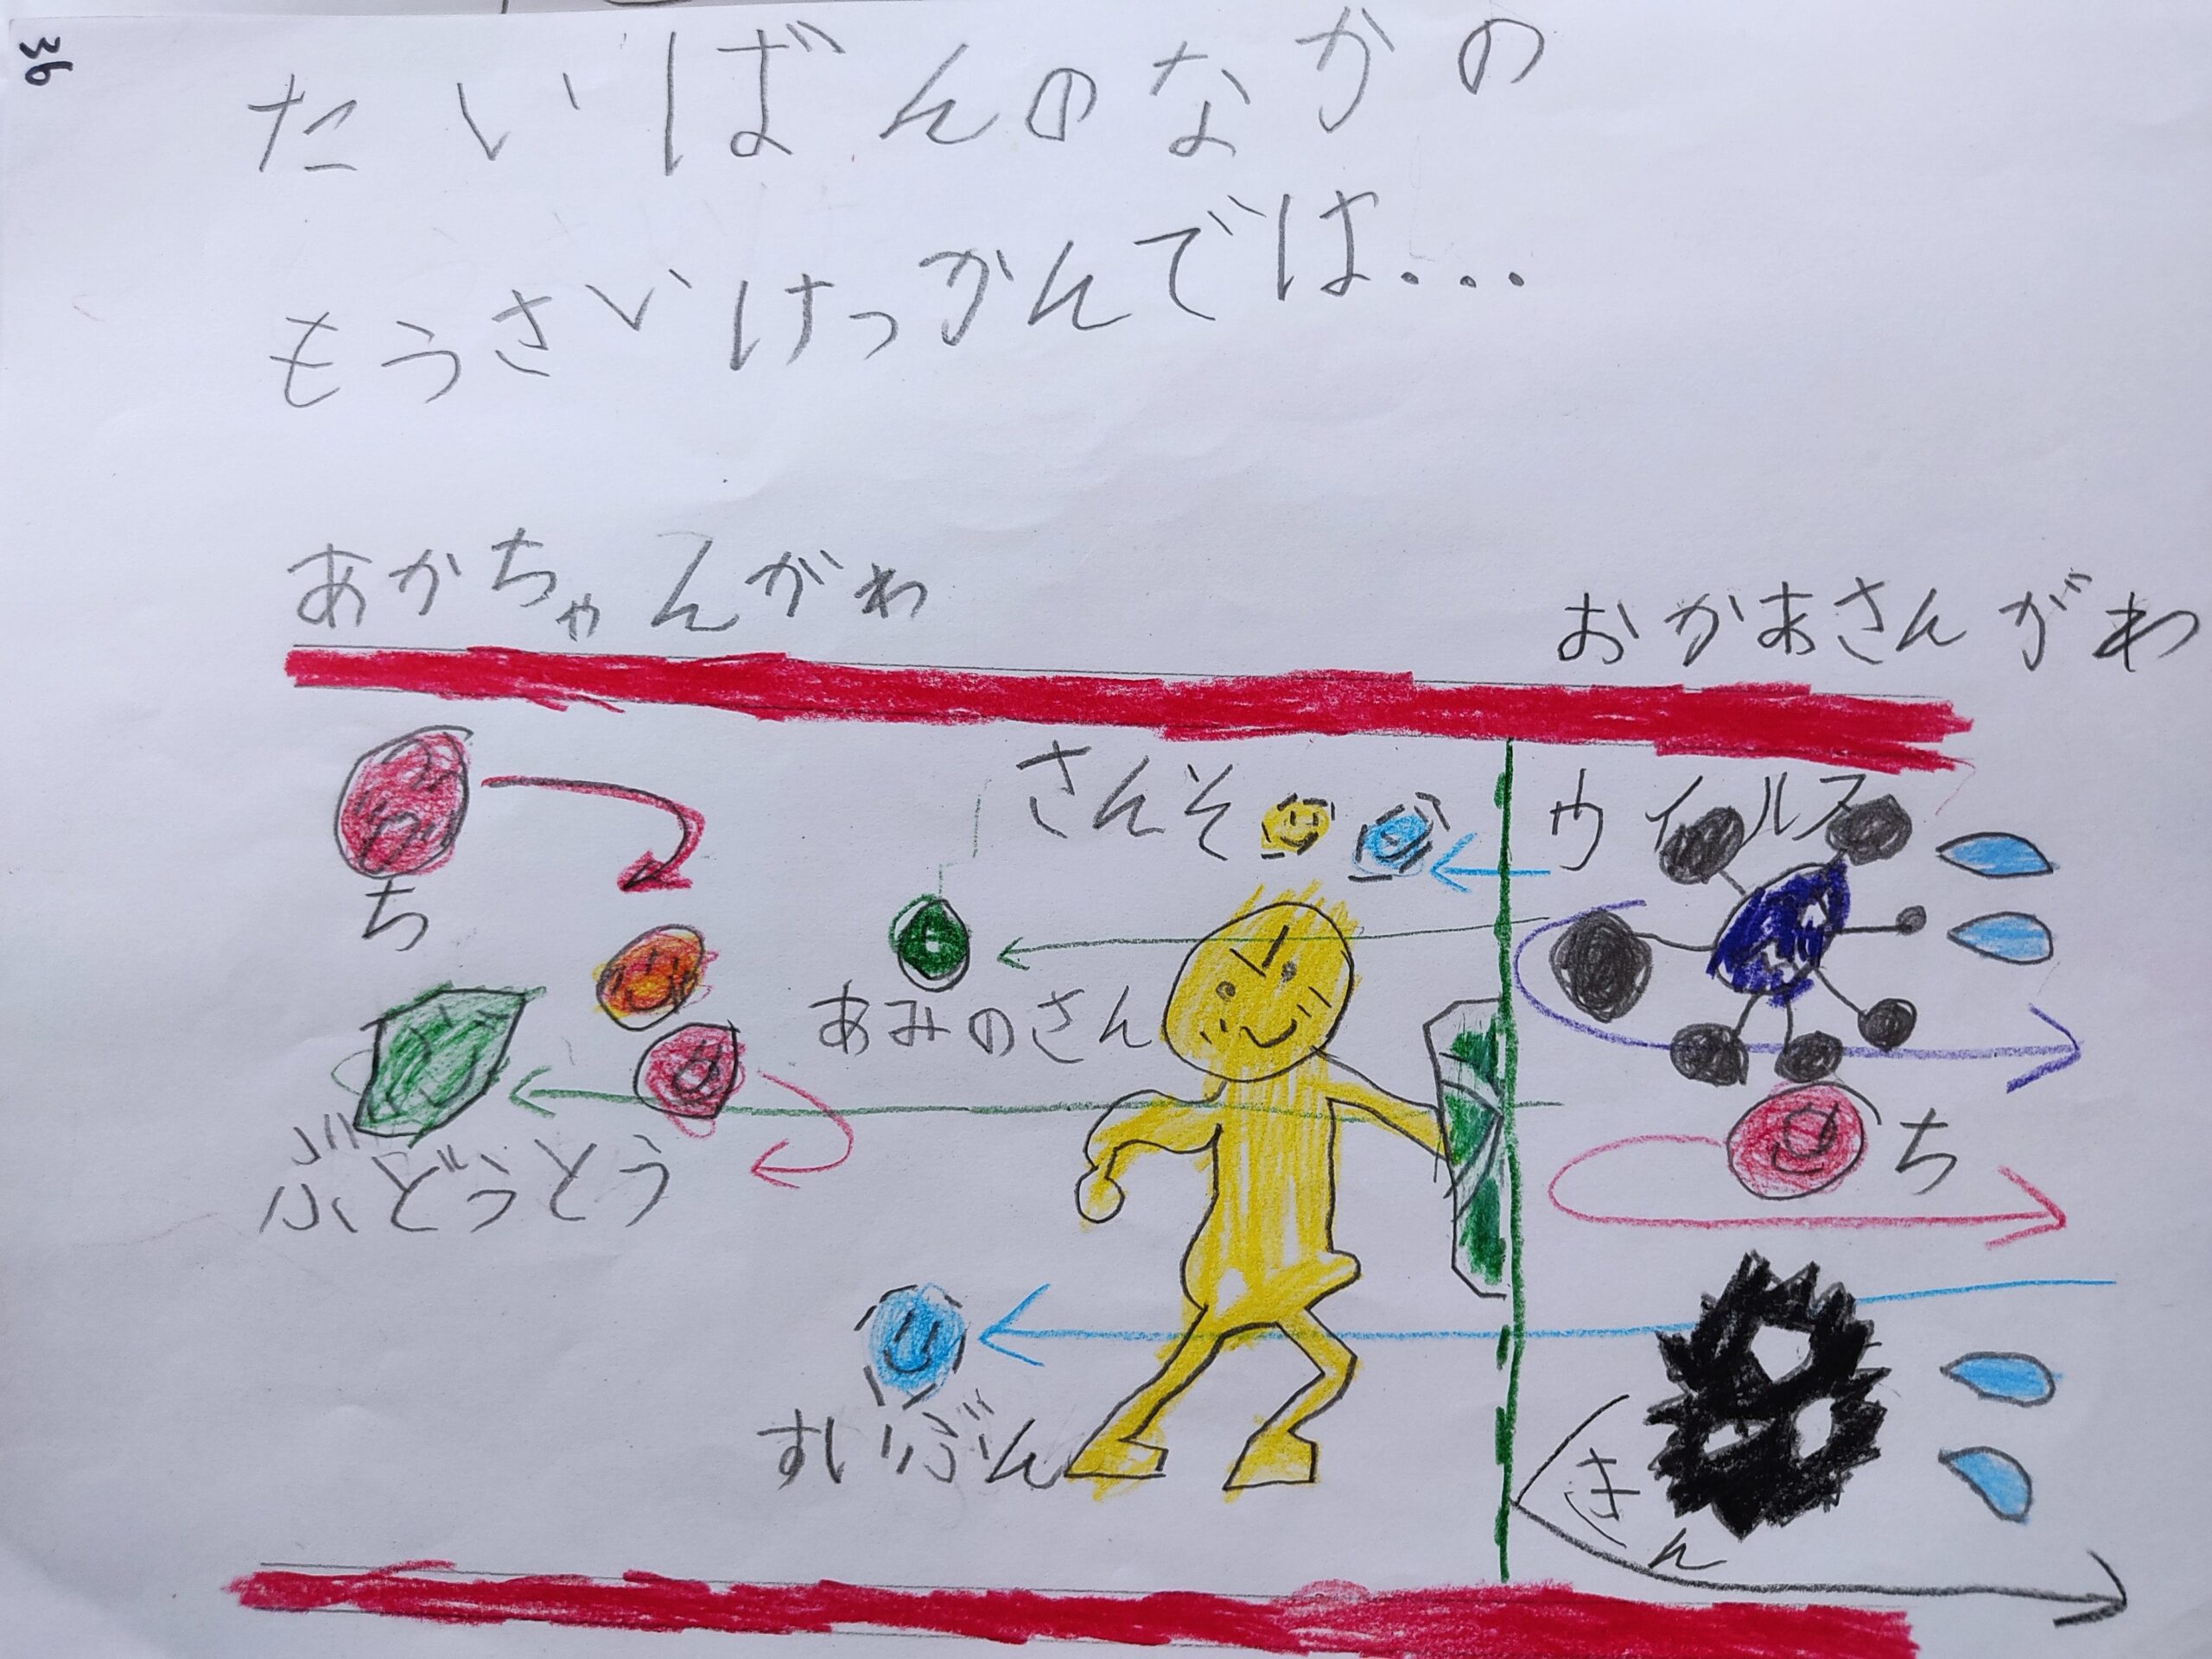 36
たいばんのなかの
もうさいけっかんでは...
あかちゃんがわ
おかあさんがわ
さんそ
ウイルス
ち
あみのさん
ぶどうとう
ち
すいぶん
きん